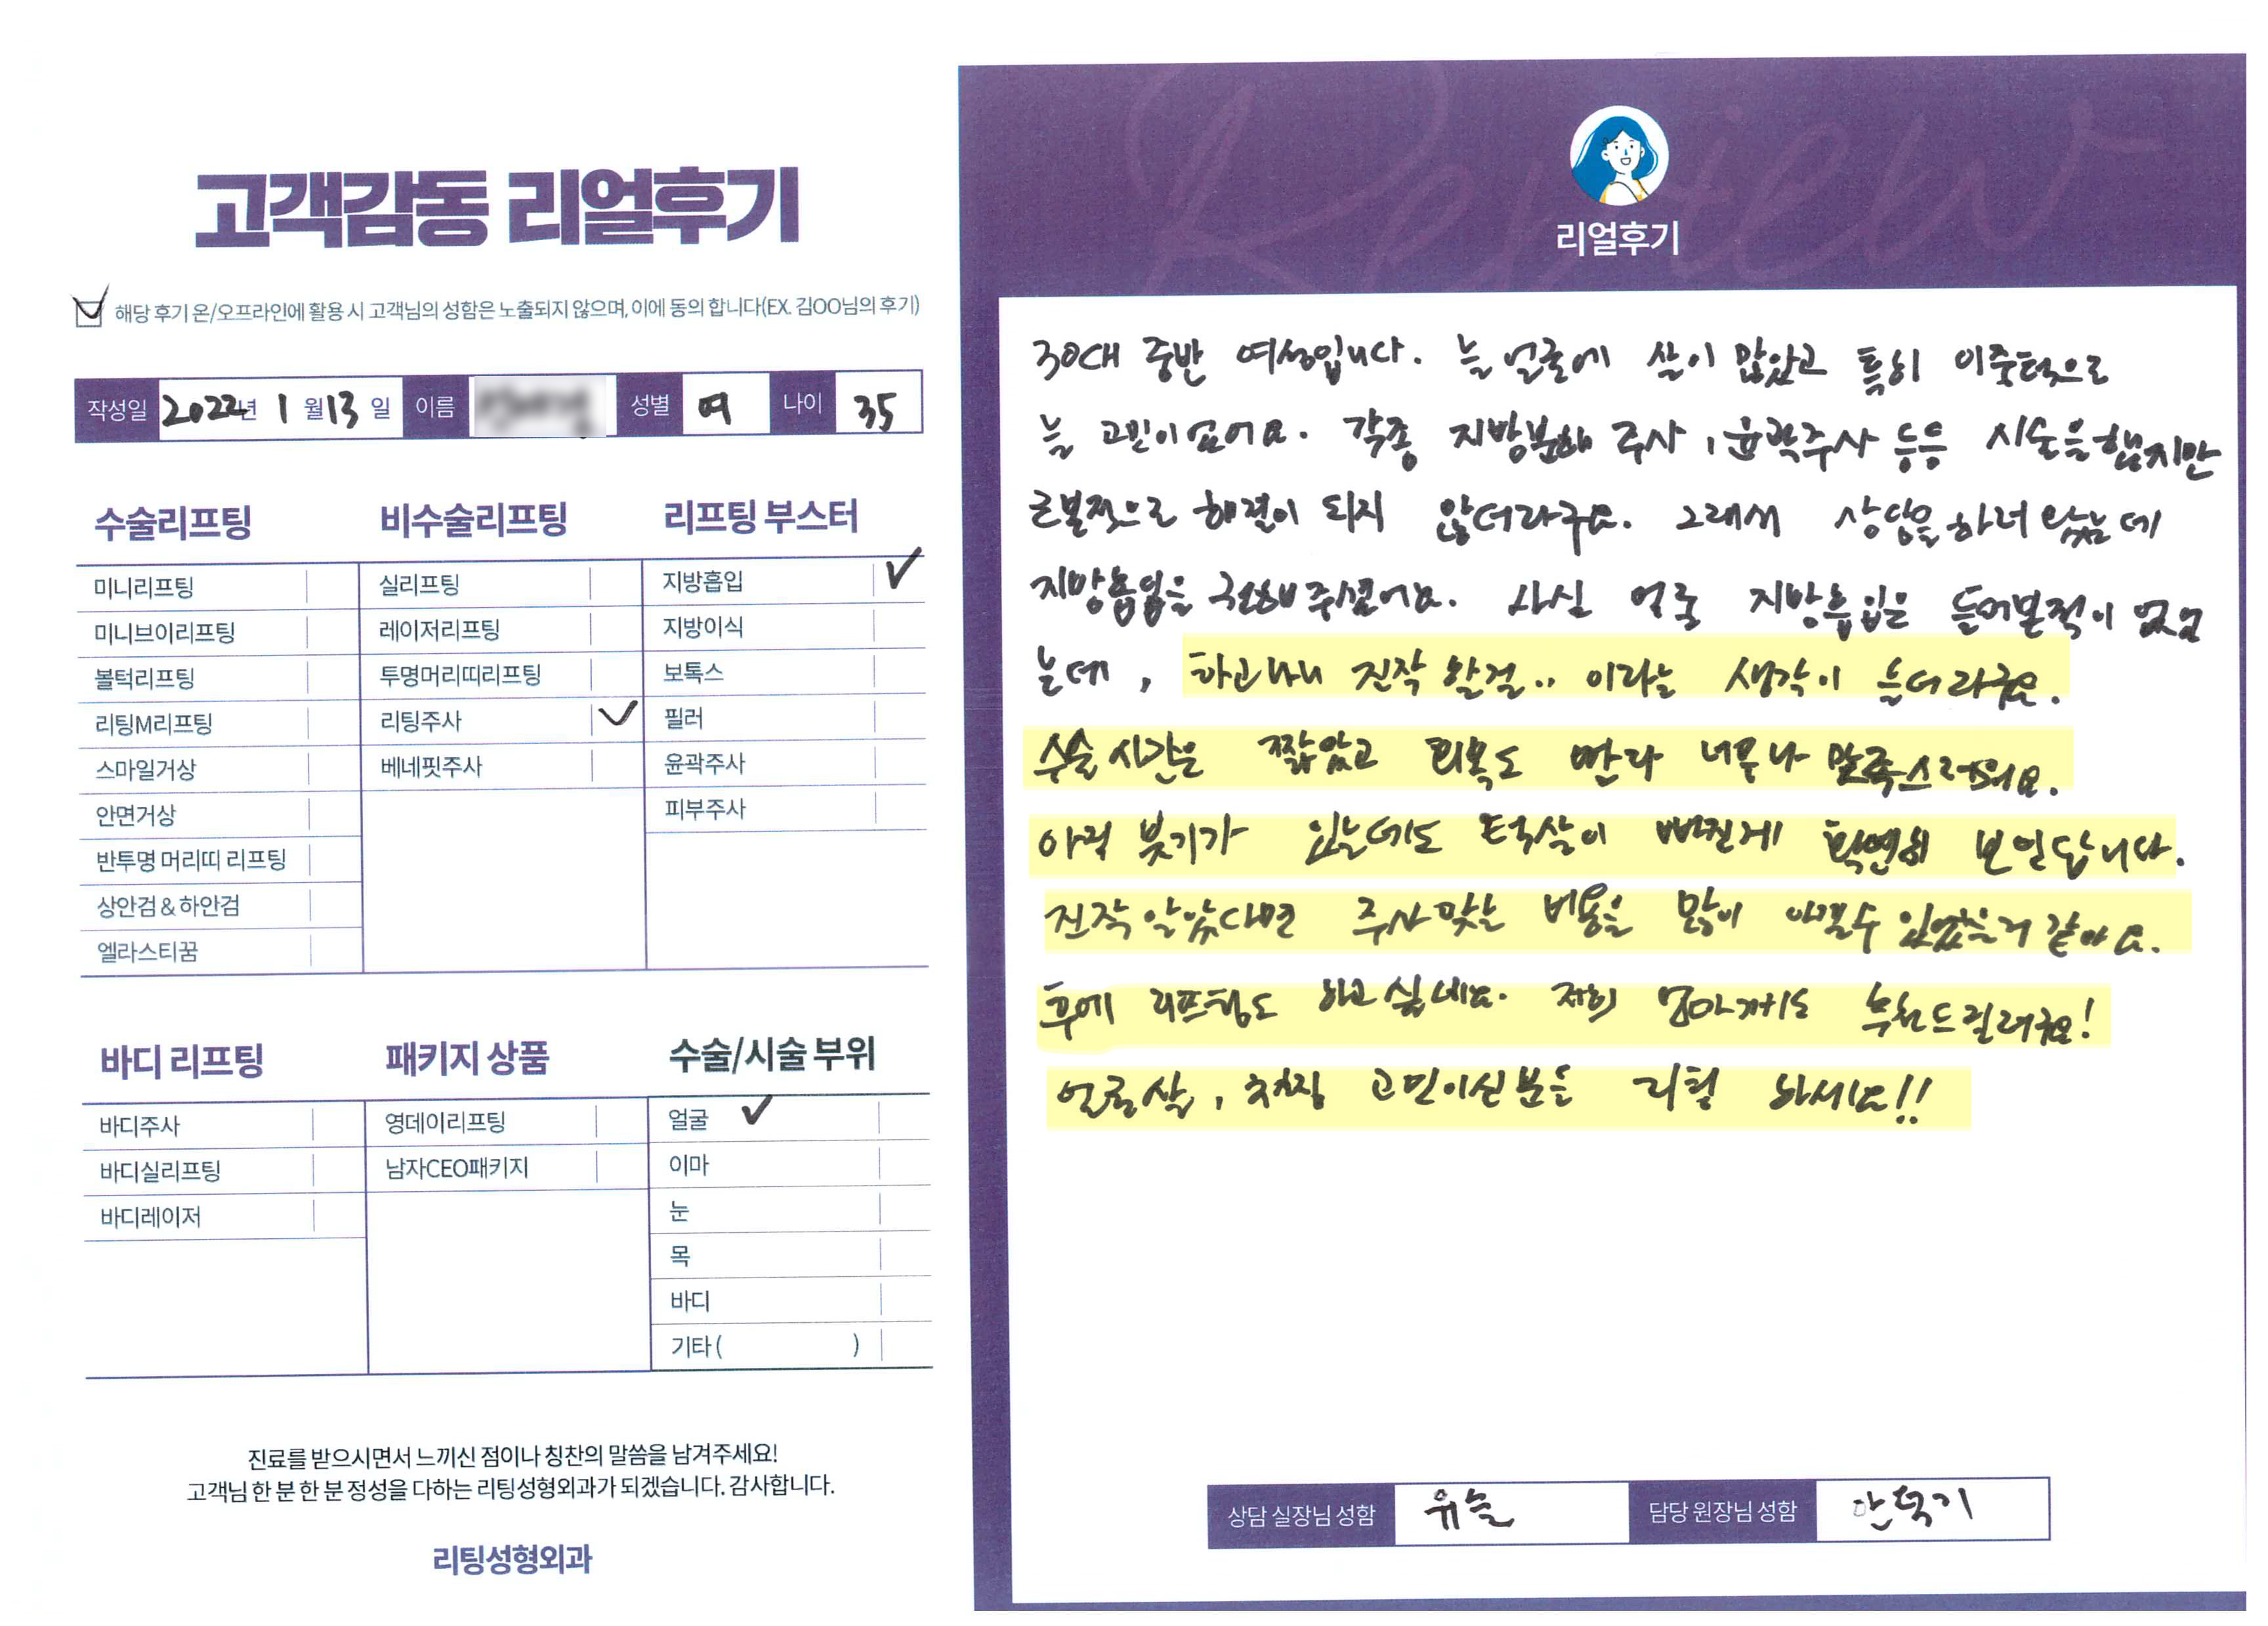 고객감동 리얼후기
해당 후기 온/오프라인에 활용 시 고객님의 성함은 노출되지 않으며, 이에 동의 합니다(EX. 김OO님의 후기)
작성일 2022년 1월 13일 이름 성별 여 나이 35
수술리프팅
미니리프팅
미니브이리프팅
볼턱리프팅
리팅M리프팅
스마일거상
안면거상
반투명 머리띠 리프팅
상안검 & 하안검
엘라스티꿈
비수술리프팅
실리프팅
레이저리프팅
투명머리띠리프팅
리팅주사
베네핏주사
리프팅 부스터
지방흡입
지방이식
보톡스
필러
윤곽주사
피부주사
바디 리프팅
바디주사
바디실리프팅
바디레이저
패키지 상품
영데이리프팅
남자CEO패키지
수술/시술 부위
얼굴
이마
눈
목
바디
기타 ( )
진료를 받으시면서 느끼신 점이나 칭찬의 말씀을 남겨주세요!
고객님 한 분 한 분 정성을 다하는 리팅성형외과가 되겠습니다. 감사합니다.
리팅성형외과
Review
리얼후기
30대 중반 여성입니다. 늘 얼굴에 살이 많았고 특히 이중턱으로
늘 고민이었어요. 각종 지방분해 주사, 윤곽주사 등등 시술을 했지만
근본적으로 해결이 되지 않더라구요. 그래서 상담을 하러 왔는데
지방흡입을 권해주셨어요. 사실 얼굴 지방흡입은 들어본적이 없었
는데, 하고나니 진작 할걸.. 이라는 생각이 들더라구요.
수술 시간은 짧았고 회복도 빨라 너무나 만족스러워요.
아직 붓기가 있는데도 턱살이 빠진게 확연히 보인답니다.
진작 알았다면 주사맞는 비용을 많이 아낄수 있었을거 같아요.
후에 리프팅도 하고싶네요. 저희 엄마께도 추천드릴려구요!
얼굴살, 처짐 고민이신분들 리팅 하세요!!
상담 실장님 성함 유늘 담당 원장님 성함 안덕기